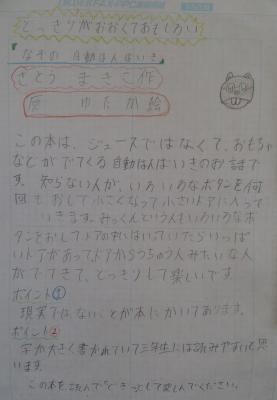 どっきりがおおくておもしろい
なぞの 自動はんばいき
さとう まきこ作
原 ゆたか絵
この本は、ジュースではなくて、おもちゃ
などがでてくる自動はんばいきのお話で
す。知らない人が、いろいろなボタンを何
回もおして小さくなって小さいドアに入って
いきます。みっくんという人もいろいろなボ
タンをおしてドアの中にはいっていたらいっぱ
いドアがあって、ドアからうちゅう人みたいな人
がでてきて、どっきりして楽しいです。
ポイント①
現実ではないことが本にかいてあります。
ポイント②
字が大きく書かれていて三年生にはよみやすいと思
います。
この本をよんで"どきっ"として楽しんでください。